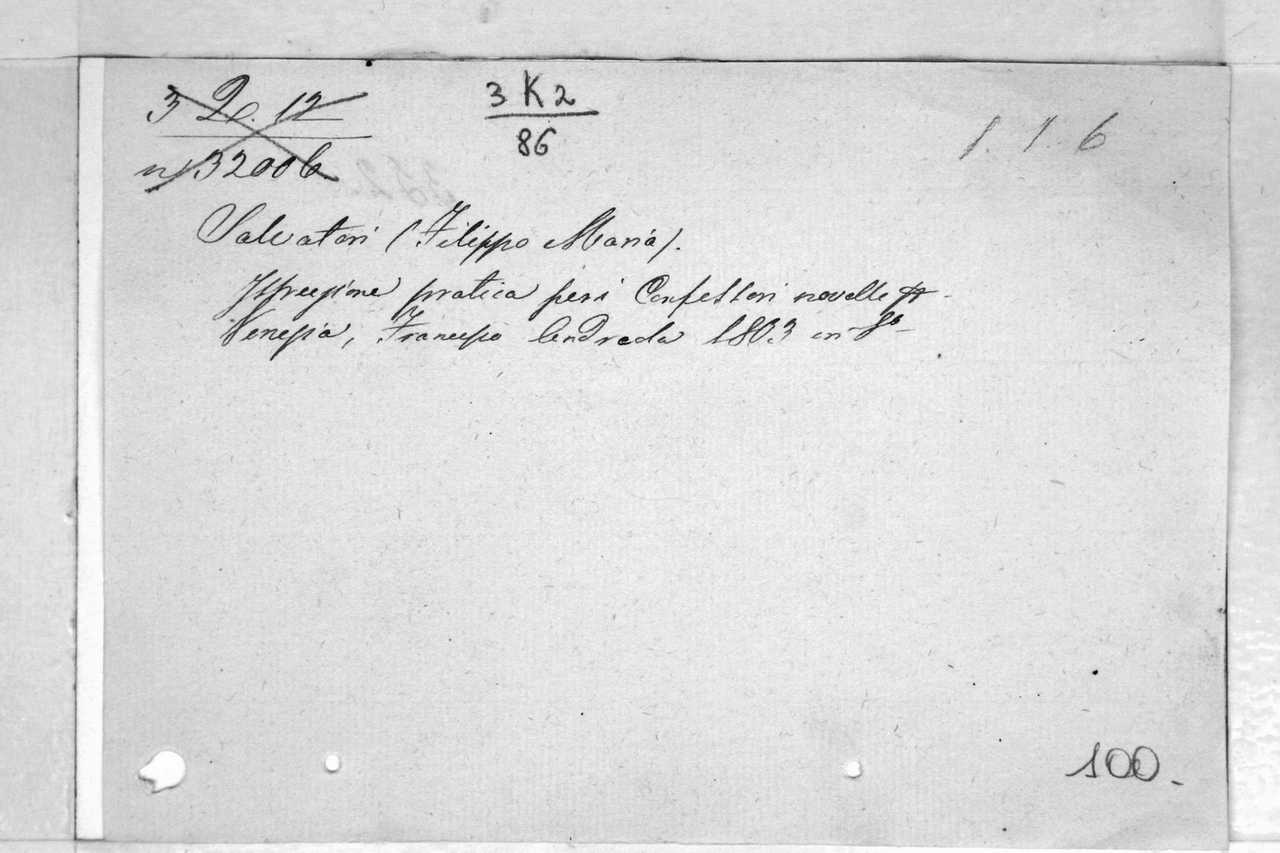 3 2. 12
n 32006
3 K 2
86
1. 1. 6
Salvatori (Filippo Maria).
pratica Confessori
Venezia, Francesco Andreola 1803 in 8º
100.